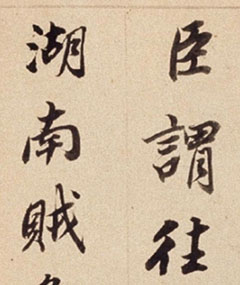 臣謂往
湖南賊